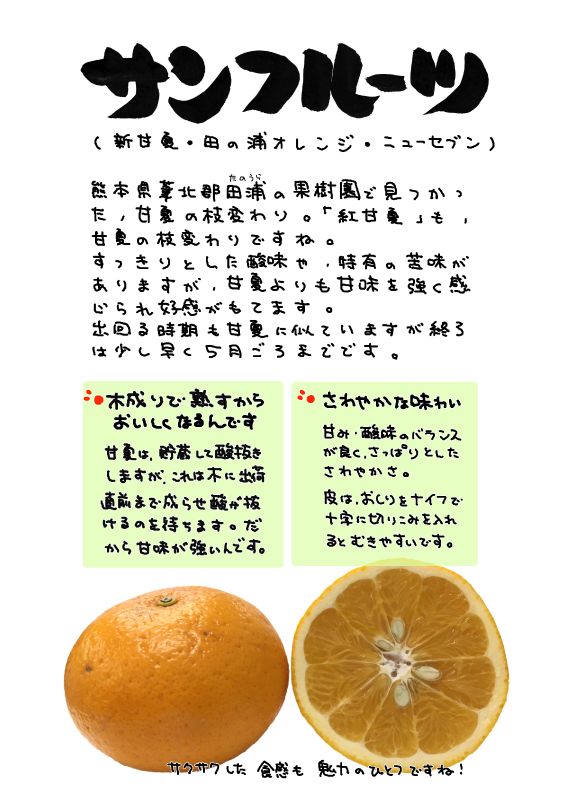 サンフルーツ
(新甘夏・田の浦オレンジ・ニューセブン)
たのうら
熊本県葦北郡田浦の果樹園で見つかっ
た、甘夏の枝変わり。「紅甘夏」も、
甘夏の枝変わりですね。
すっきりとした酸味や、特有の苦味が
ありますが、甘夏よりも甘味を強く感
じられ好感がもてます。
出回る時期も甘夏に似ていますが終る
は少し早く5月ごろまでです。
木成りで熟すから
おいしくなるんです
甘夏は、貯蔵して酸抜き
しますが、これは木に出荷
直前まで成らせ酸が抜
けるのを待ちます。だ
から甘味が強いんです。
さわやかな味わい
甘み・酸味のバランス
が良く、さっぱりとした
さわやかさ。
皮は、おしりをナイフで
十字に切りこみを入れ
るとむきやすいです。
サクサクした 食感も 魅力のひとつですね!